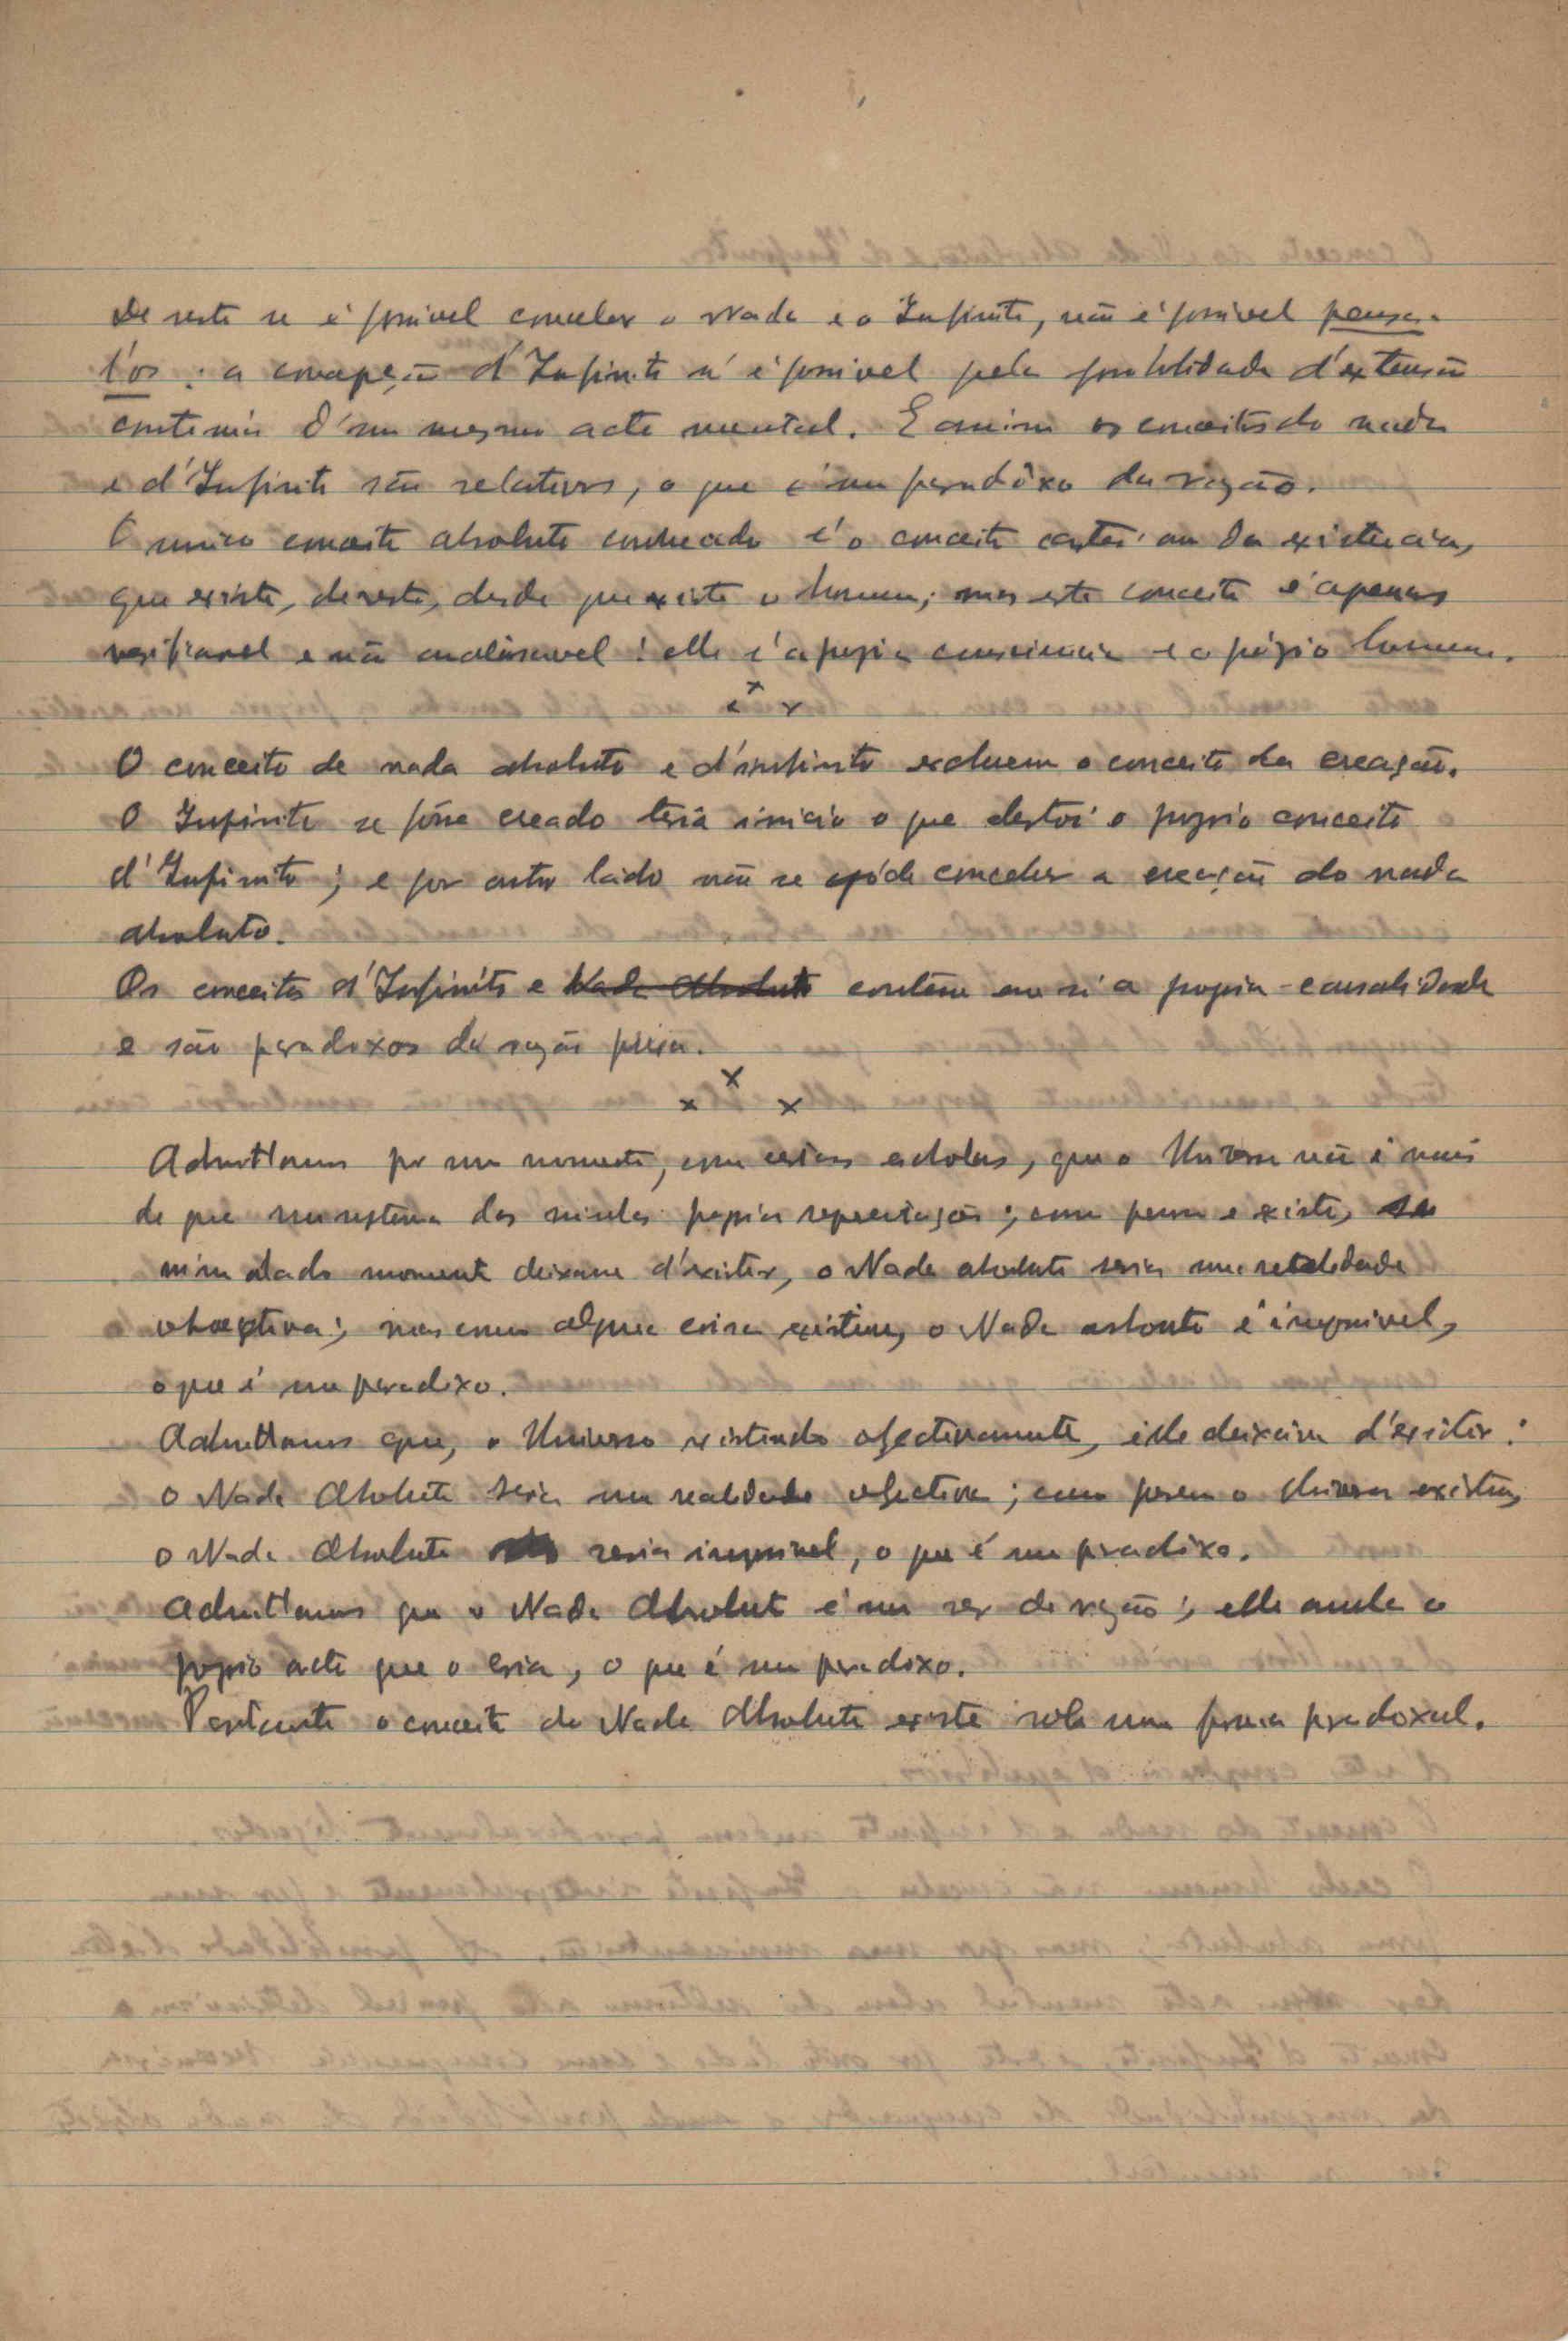 De resto se é possivel conceber o Nada e o Infinito, não é possivel pensa-
l'os : a concepção d'Infinito só é possivel pela possibilidade d'extensão
d'um mesmo acto mental. E assim os conceitos do nada
e d'Infinito são relativos, o que é um paradôxo da razão.
O unico conceito absoluto conhecido é o conceito cartesiano da existencia,
que existe, de resto, desde que existe o homem; mas este conceito é apenas
verificavel e não analisavel : elle é a propria consciencia e o próprio homem.
x x x
O conceito de nada absoluto e d'infinito excluem o conceito da creação.
O Infinito se fôsse creado teria inicio o que destroi o proprio conceito
d'Infinito ; e por outro lado não se póde conceber a creação do nada
absoluto.
Os conceitos d'Infinito e Nada Absoluto contêm em si a propria causalidade
e são paradoxos da razão pura.
x x x
Admittamos por um momento, com certas escolas, que o Universo não é mais
do que um systema das minhas proprias representações ; como penso e existo, se
n'um dado momento deixasse d'existir, o Nada absoluto seria uma realidade
objectiva ; mas como alguma coisa existiu, o Nada absoluto é impossivel,
o que é um paradoxo.
Admittamos que, o Universo existindo objectivamente, elle deixava d'existir :
o Nada Absoluto seria uma realidade objectiva ; como porem o Universo existiu,
o Nada Absoluto seria impossivel, o que é um paradoxo.
Admittamos que o Nada Absoluto é um ser de razão ; elle anula o
proprio acto que o cria, o que é um paradoxo.
Portanto o conceito do Nada Absoluto existe sob uma forma paradoxal.